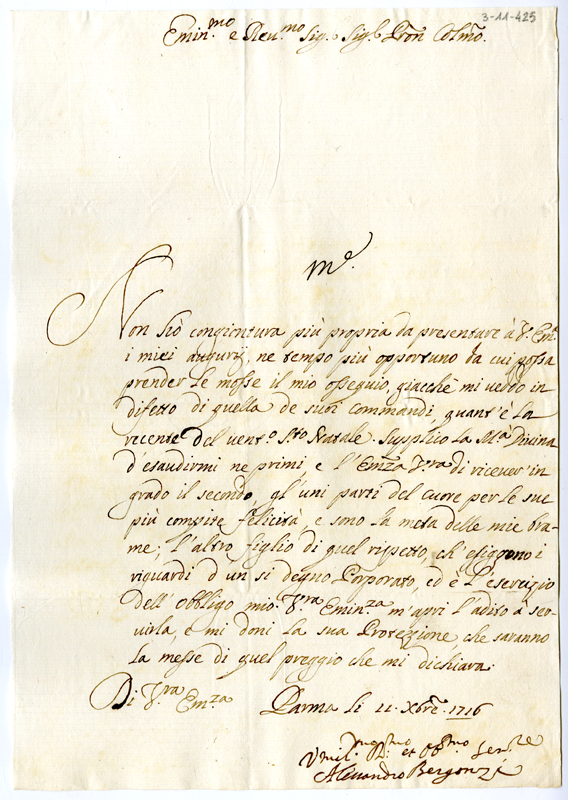 3-11-425
Emin.mo e Reu.mo Sig.e Sig.e Pron Colmo.
M.e
Non hò congiontura più propria da presentare à V. Em.a
i miei augurÿ, ne tempo più opportuno da cui possa
prender le mosse il mio ossequio, giacchè mi vedo in
difetto di quella de suoi commandi, quant'è la
recente del vent.o S.to Natale. Supplico la M.a Divina
d'esaudirmi ne primi, e l'Em.za V.ra di ricever in
grado il secondo, gl'uni parti del cuore per le sue
più compite felicità, e sono la meta delle mie bra-
me; l'altro figlio di quel rispetto, ch'esiggono i
riguardi d'un si degno Porporato, ed è l'esercizio
dell'obbligo mio. V.ra Emin.za m'apri l'adito à ser-
virla, e mi doni la sua Protezzione che saranno
la messe di quel preggio che mi dichiara.
Di V.ra Em.za Parma li 11. Xbre. 1716
Vmil.mo et Obb.mo Ser.re
Alessandro Bergonzi